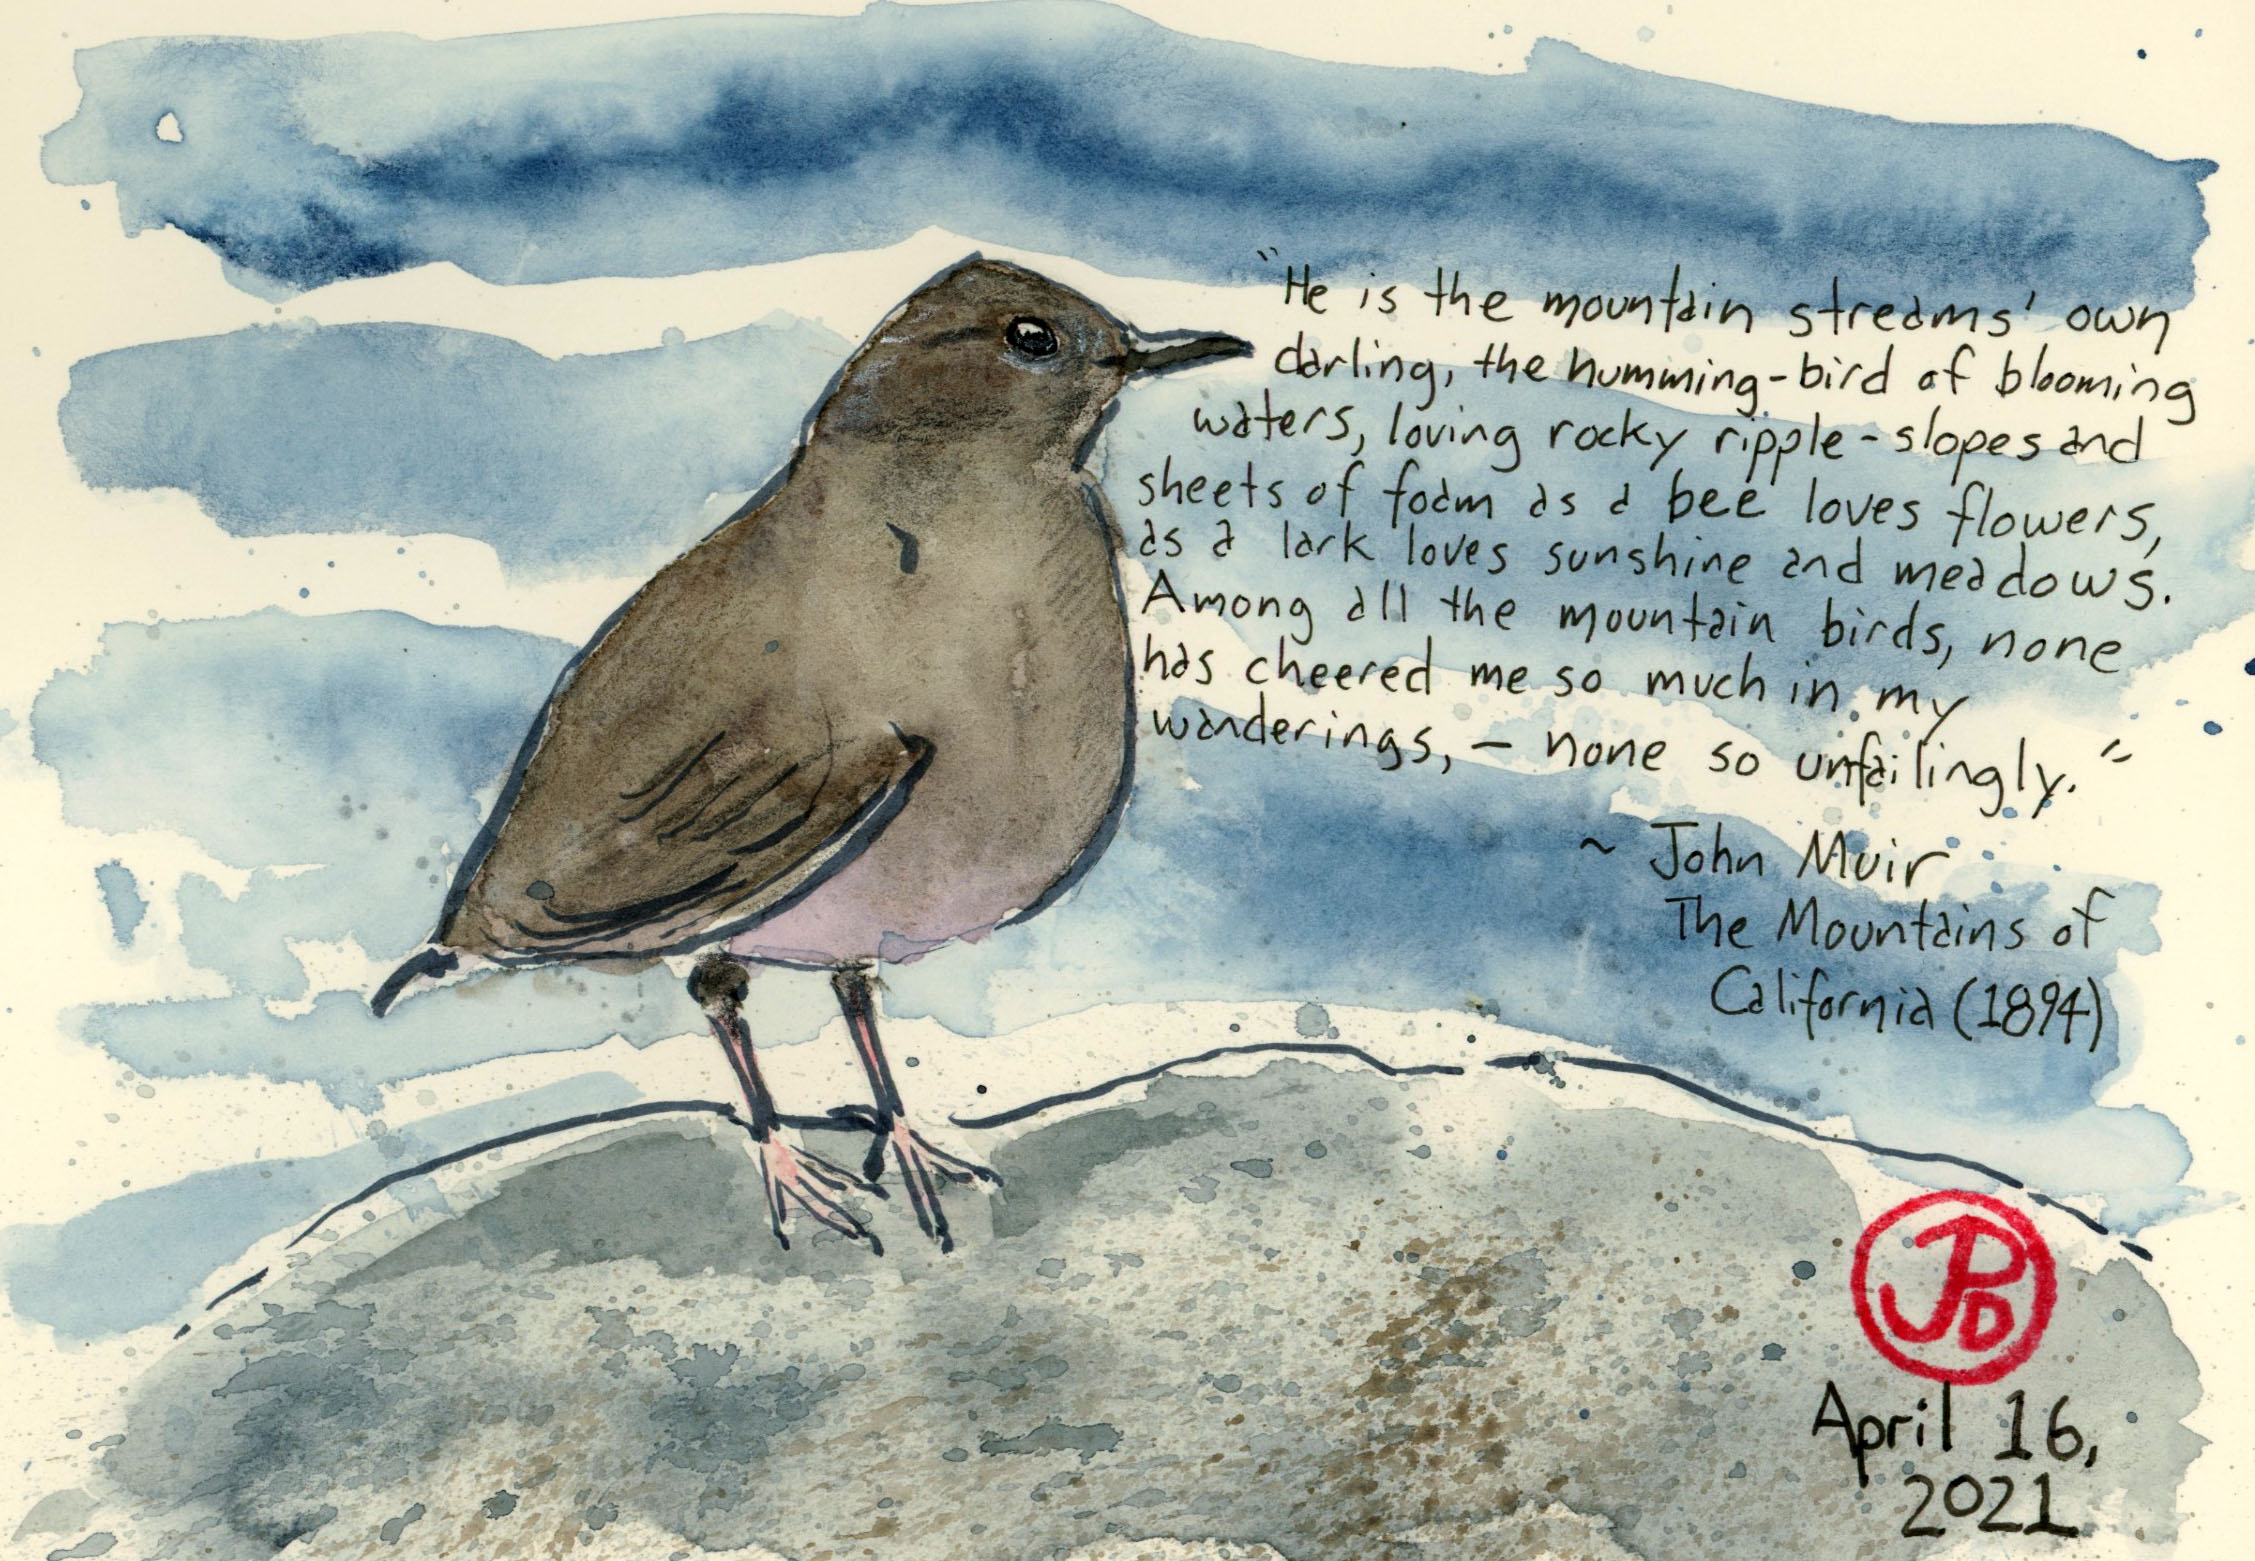 "He is the mountain streams' own
darling, the humming-bird of blooming
waters, loving rocky ripple-slopes and
sheets of foam as a bee loves flowers,
as a lark loves sunshine and meadows.
Among all the mountain birds, none
has cheered me so much in my
wanderings, – none so unfailingly."
~ John Muir
The Mountains of
California (1894)
JPD
April 16,
2021